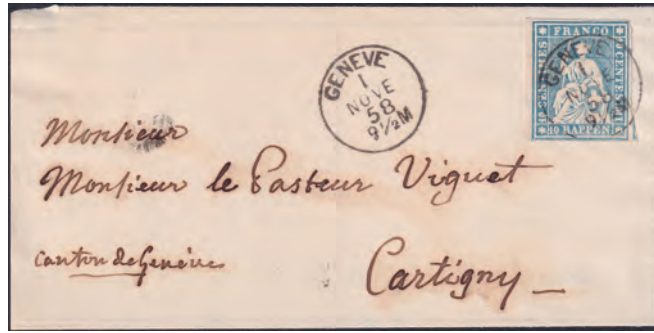 GENEVE
1
NOVE
58
9½M
FRANCO
10 RAPPEN
GENEVE
1
NOVE
58
9½M
Monsieur
Monsieur le Pasteur Viguet
canton de Genève
Cartigny